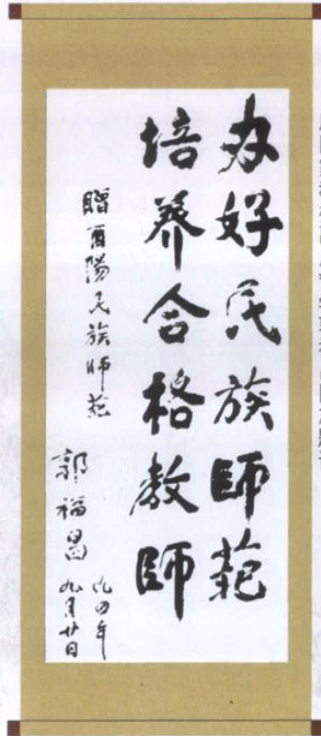 办好民族师范
培养合格教师
贈酉陽民族师范
郭福昌
九四年
九月廿日